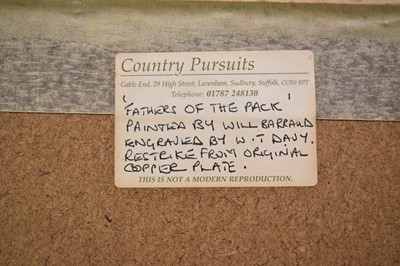 Country Pursuits
Gable End, 29 High Street, Lavenham, Sudbury, Suffolk, CO10 9PT
Telephone: 01787 248130
'FATHERS OF THE PACK'
PAINTED BY WILL BARRAUD
ENGRAVED BY W.T DAVY.
RESTRIKE FROM ORIGINAL
COPPER PLATE.
THIS IS NOT A MODERN REPRODUCTION.